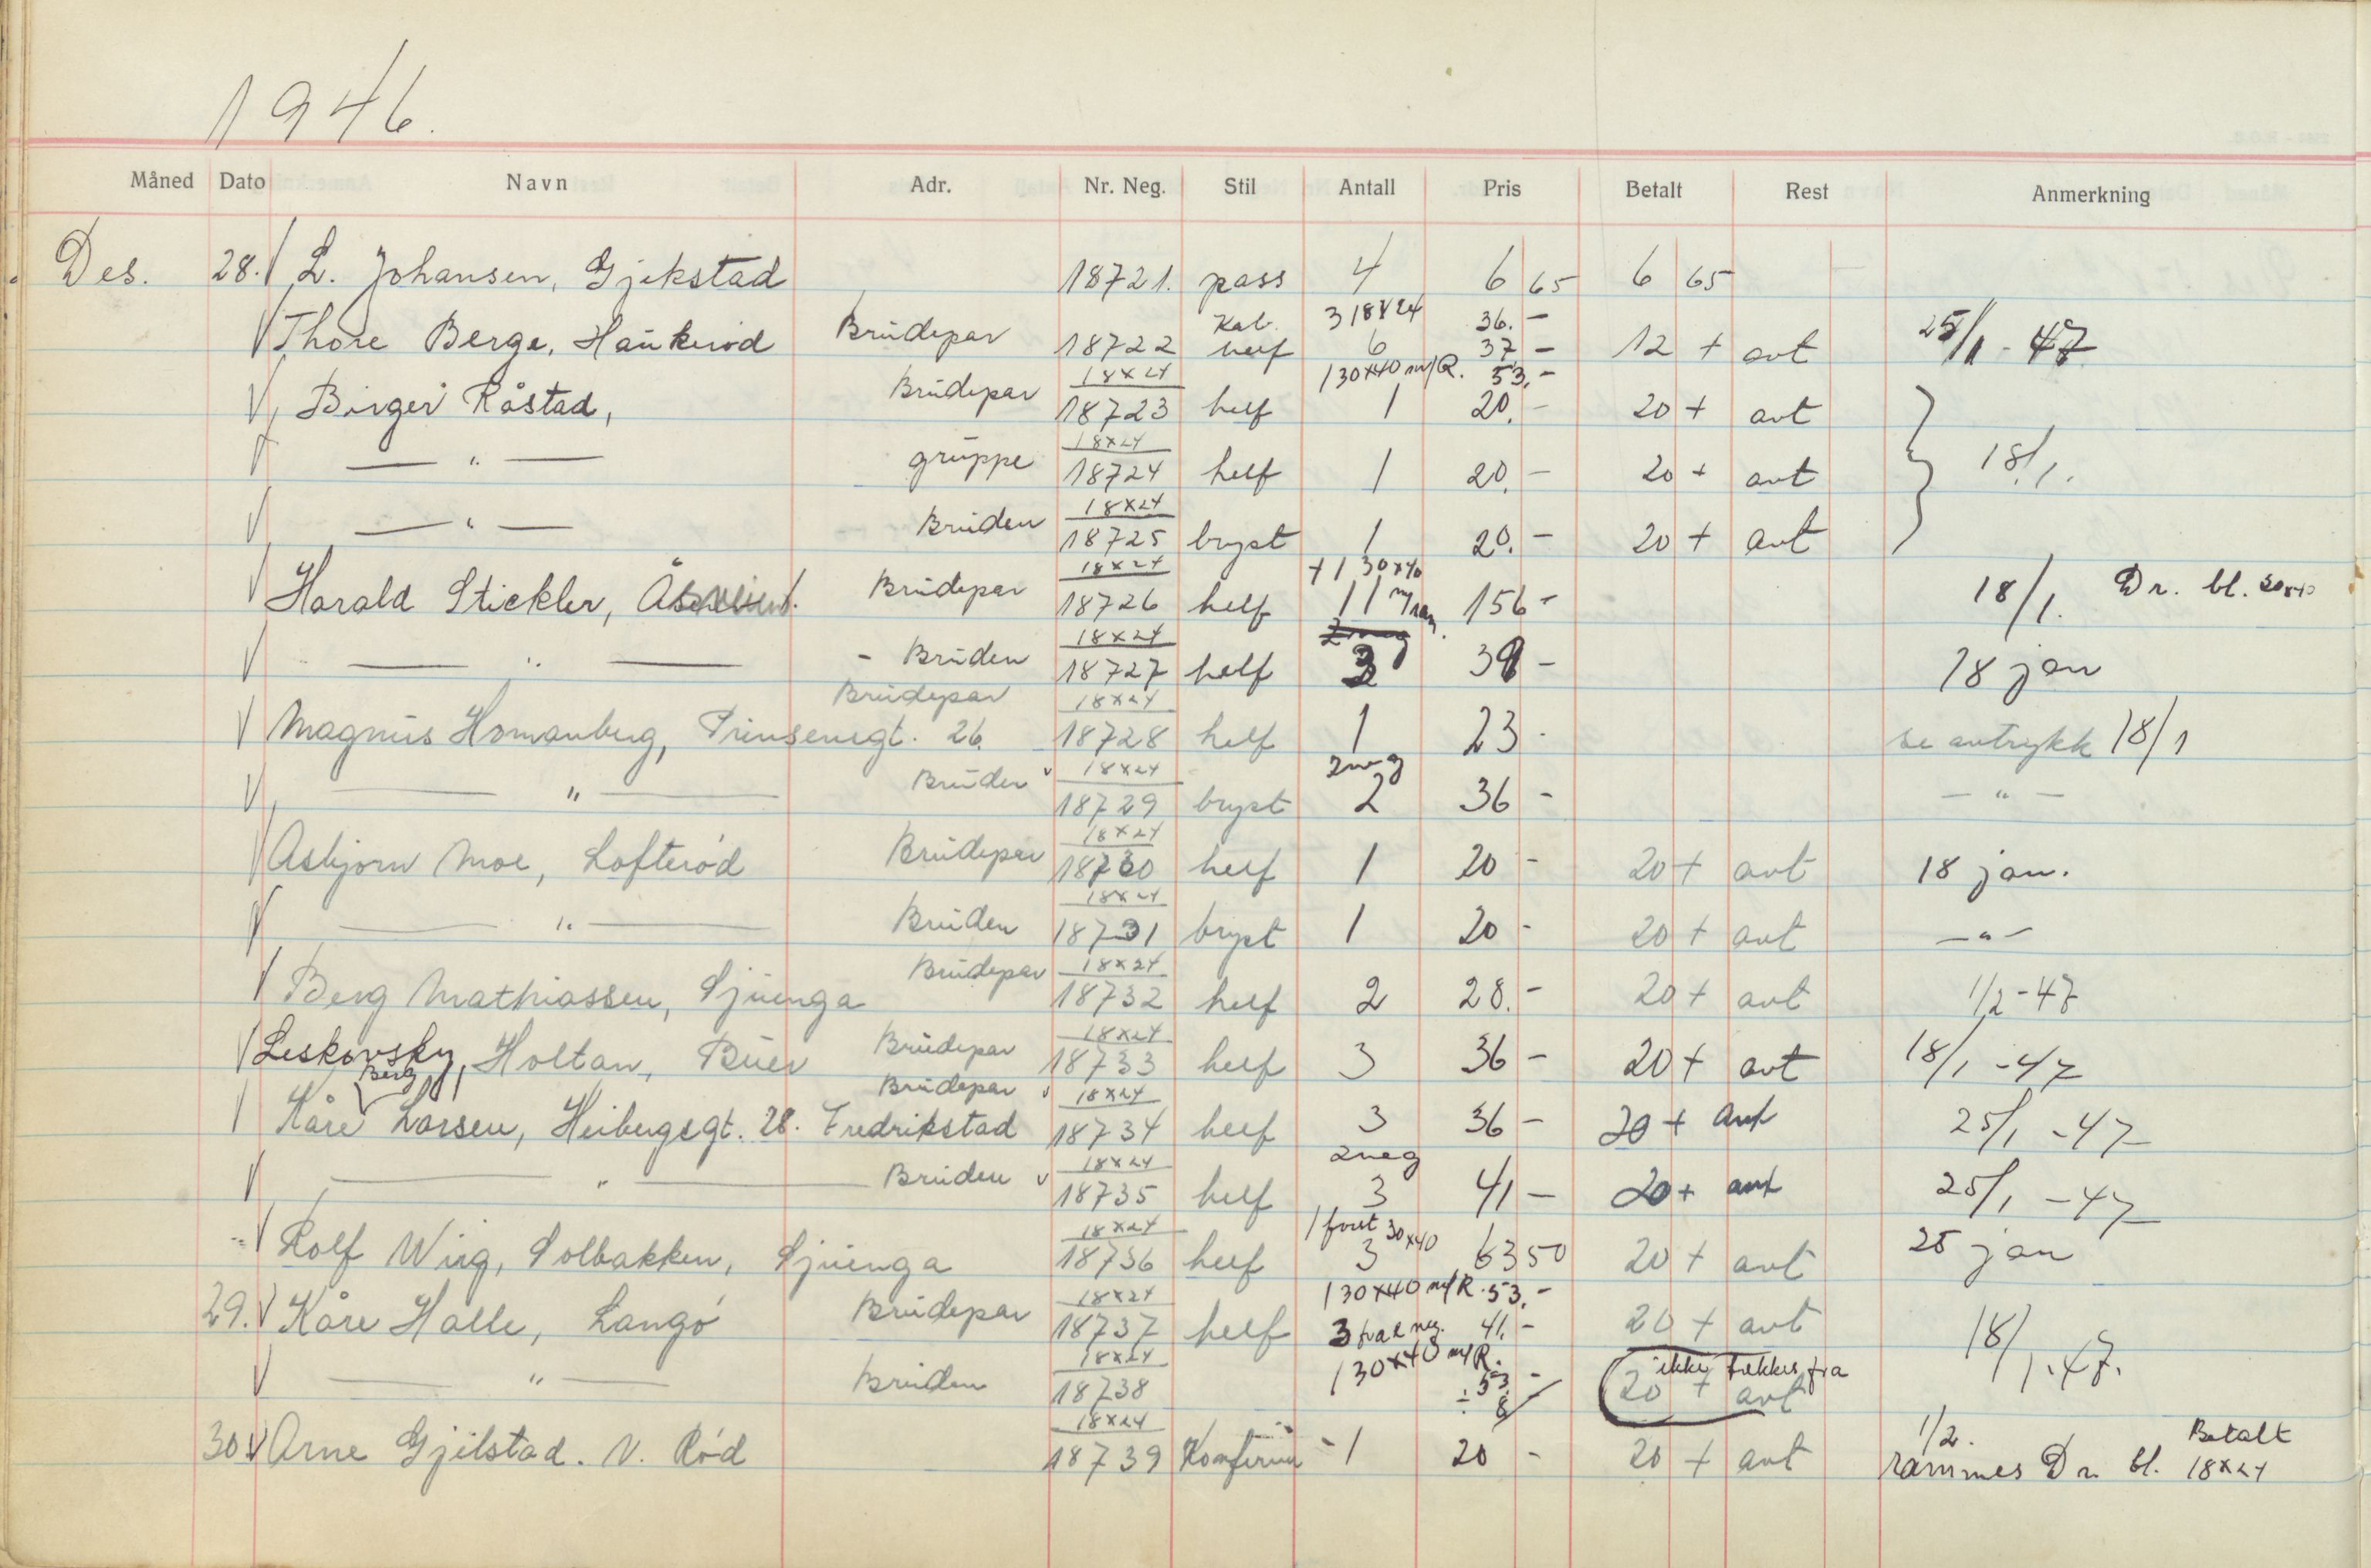 1946.
Måned Dato Navn Adr. Nr. Neg. Stil Antall Pris Betalt Rest Anmerkning
Des. 28. L. Johansen, Gjekstad 18721. pass 4 6 65 6 65
Kab. 3 18x24 36.-
Thore Berge, Haukerød Brudepar 18722 helf 6 37,- 12 + avt 25/1 - 47
18x24 1 30x40 m/R. 53.-
Birger Råstad, Brudepar 18723 helf 1 20.- 20 + avt
18x24
— " — gruppe 18724 helf 1 20.- 20 + avt 18/1.
18x24
— " — Bruden 18725 bryst 1 20.- 20 + avt
18x24 + 1 30x40
Harald Stickler, Brudepar 18726 helf 11 m/ram. 156- 18/1. Dr. bl. 30x40
18x24 2 neg
— " — - Bruden 18727 helf 3 39- 18 jan
Brudepar 18x24
Magnus Homanberg, Prinsensgt. 26. 18728 helf 1 23- se avtrykk 18/1
18x24 2 neg
— " — Bruden 18729 bryst 2 36- — " —
18x24
Asbjørn Moe, Lofterød Brudepar 18730 helf 1 20- 20 + avt 18 jan.
18x24
— " — Bruden 18731 bryst 1 20- 20 + avt — " —
18x24
Berg Mathiassen, Sjuenga Brudepar 18732 helf 2 28.- 20 + avt 1/2-47
18x24
Leskovsky, Holtan, Buer Brudepar 18733 helf 3 36- 20 + avt 18/1 -47
Berg Brudepar 18x24
Kåre Larsen, Heibergsgt. 28. Fredrikstad 18734 helf 3 36- 20 + avt 25/1 -47
18x24 2 neg
— " — Bruden 18735 helf 3 41- 20 + avt 25/1 -47
18x24 1 foret 30x40
Rolf Wiig, Solbakken, Sjuenga 18736 helf 3 63 50 20 + avt 25 jan
18x24 1 30x40 m/R. 53.-
29. Kåre Halle, Langø Brudepar 18737 helf 3 fra 2 neg. 41.- 20 + avt 18/1.47.
18x24 1 30x40 m/R. ikke trekkes fra
— " — Bruden 18738 53.- ÷ 8 20 + avt
18x24 1/2. Betalt
30. Arne Gjelstad. N. Rød 18739 Konfirm - 1 20- 20 + avt rammes Dr. bl. 18x24